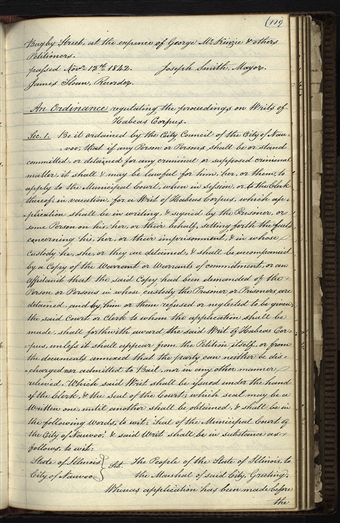 (119)
Bagby Street, at the expence of George McKinzie & others
Petitioners.
passed Novr. 12th. 1842. Joseph Smith, Mayor.
James Sloan, Recorder.
An Ordinance regulating the proceedings on Writs of
Habeas Corpus.
Sec. 1. Be it ordained by the City Council of the City of Nau-
voo, that if any Person or Persons shall be or stand
committed, or detained for any criminal or supposed criminal
matter, it shall & may be lawful for him, her, or them, to
apply to the Municipal Court, when in session, or to the Clerk
thereof in vacation, for a Writ of Habeas Corpus, which ap-
plication shall be in writing, & signed by the Prisoner, or
some Person on his, her, or their behalf, setting forth the facts
concerning his, her, or their imprisonment, & in whose
Custody he, she, or they are detained, & shall be accompanied
by a Copy of the Warrant or Warrants of commitment, or an
Affidavit that the said Copy had been demanded of the
Person or Persons in whose custody the Prisoner or Prisoners are
detained, and by him or them refused or neglected to be given,
the said Court or Clerk to whom the application shall be
made, shall forthwith award the said Writ of Habeas Cor-
pus, unless it shall appear from the Petition itself, or from
the documents annexed that the party can neither be dis-
charged nor admitted to Bail, nor in any other manner
relieved. Which said Writ shall be issued under the hand
of the Clerk, & the Seal of the Court, which seal may be a
Written one, until another shall be obtained, & shall be in
the following Words, to wit, Seal of the Municipal Court of
the City of Nauvoo, & said Writ shall be in substance as
follows to wit;
State of Illinois The People of the State of Illinois, to
City of Nauvoo the Marshal of said City, Greeting,
Whereas application has been made before
the